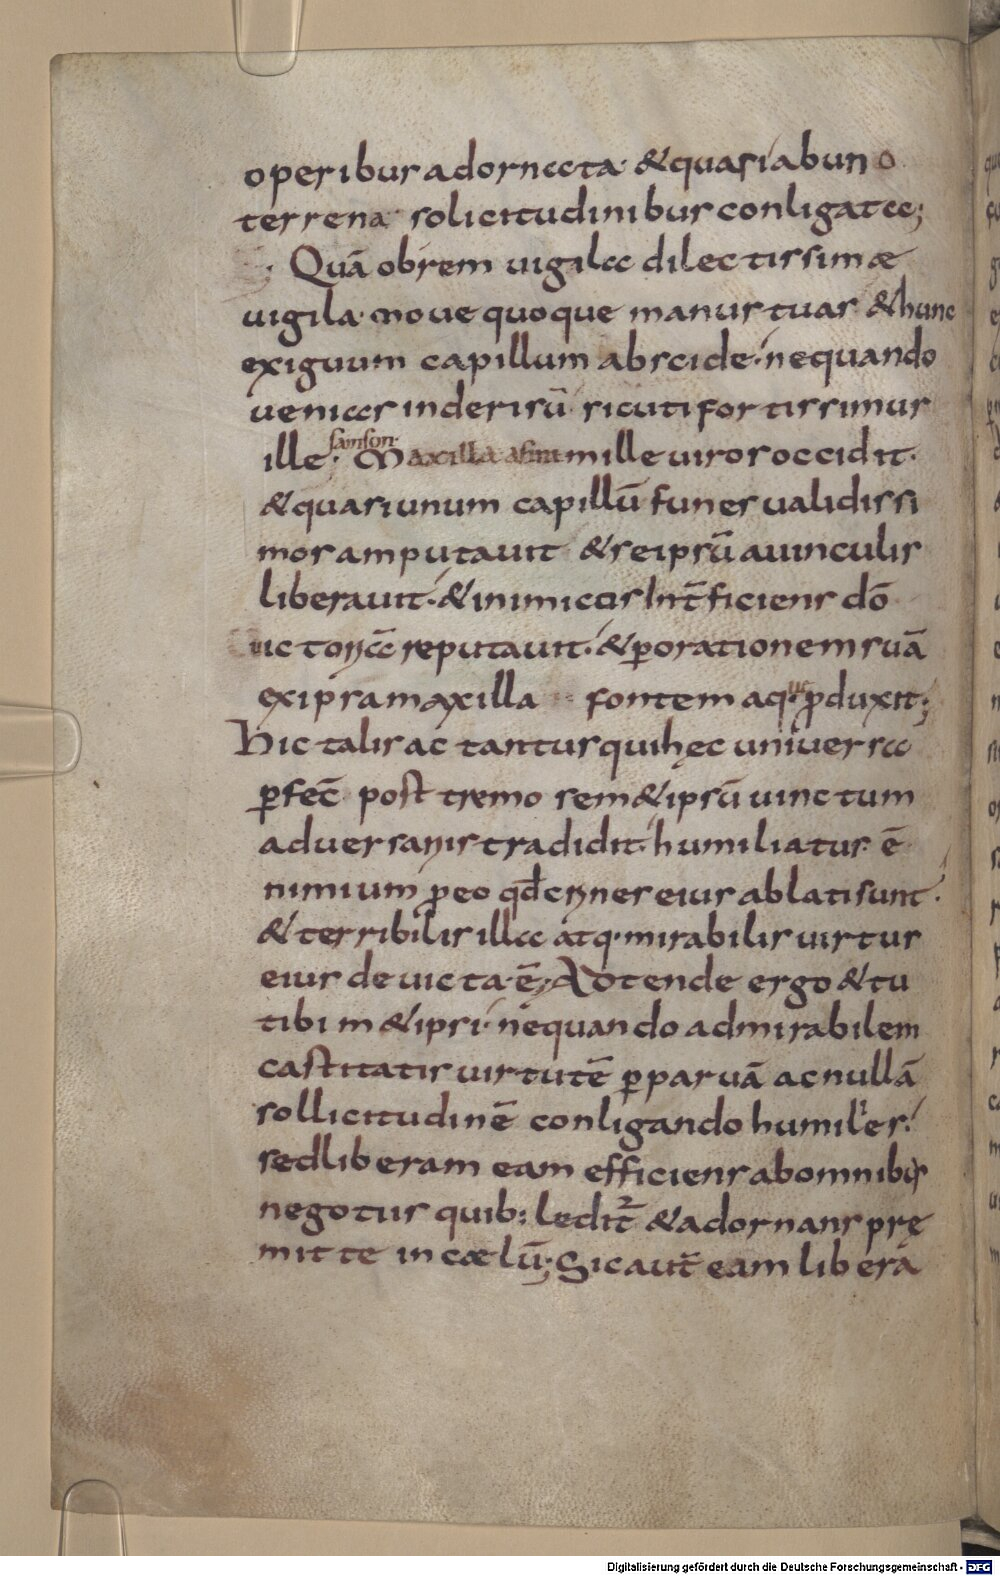 operibus adornata· & quasi ab uno
terrena sollicitudinibus conligata;
Quā obrem uigila dilectissimæ
uigila· moue quoque manus tuas & hunc
exiguum capillum abscide· ne quando
uenias in derisū sicuti fortissimus
ille· Maxilla asini mille uiros occidit·
samson·
& quasi unum capillū funes ualidissi
mos amputauit & seipsū a uinculis
liberauit·& inimicos int̄ficiens dō
uictoriā reputauit· & p̱ orationem suā
ex ipsa maxilla fontem aq· ꝓduxit;
uę
Hic talis ac tantus qui hęc uniuersa
p̱fec̄ post tremo sem&ipsū uinctum
aduersariis tradidit· humiliatus ē
nimium ꝓ eo qđ crines eius ablati sunt·
& terribilis illa atq· mirabilis uirtus
eius deuicta ē; Adtende ergo & tu
tibi m&ipsi· ne quando admirabilem
castitatis uirtutē p̱ paruā ac nullā
sollicitudinē conligando humilies·
sed liberam eam efficiens ab omnibus
negotiis quib: ledit̄ & adornans prę
mitte in cælū; Sic aut̄ eam liberā